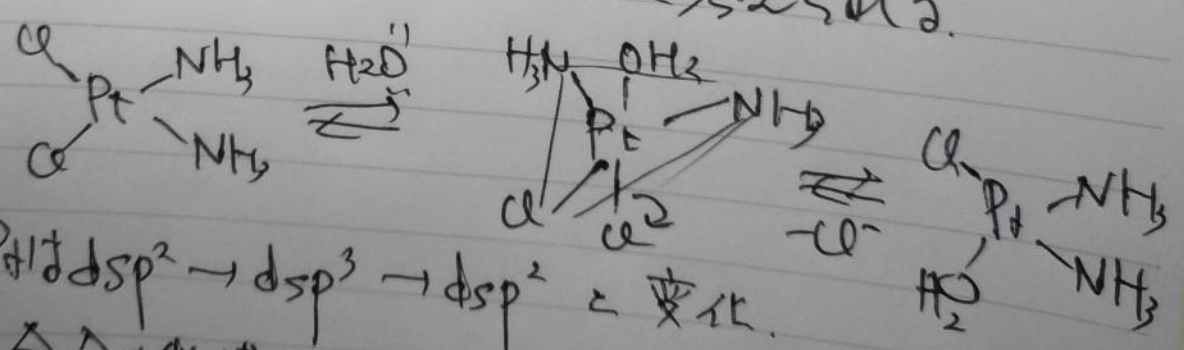 Cl Pt NH₃ Cl NH₃ H₂O ⇌ H₃N OH₂ Pt NH₃ Cl Cl ⇌ -Cl⁻ Cl Pt NH₃ H₂O NH₃
dsp² → dsp³ → dsp² と変化.